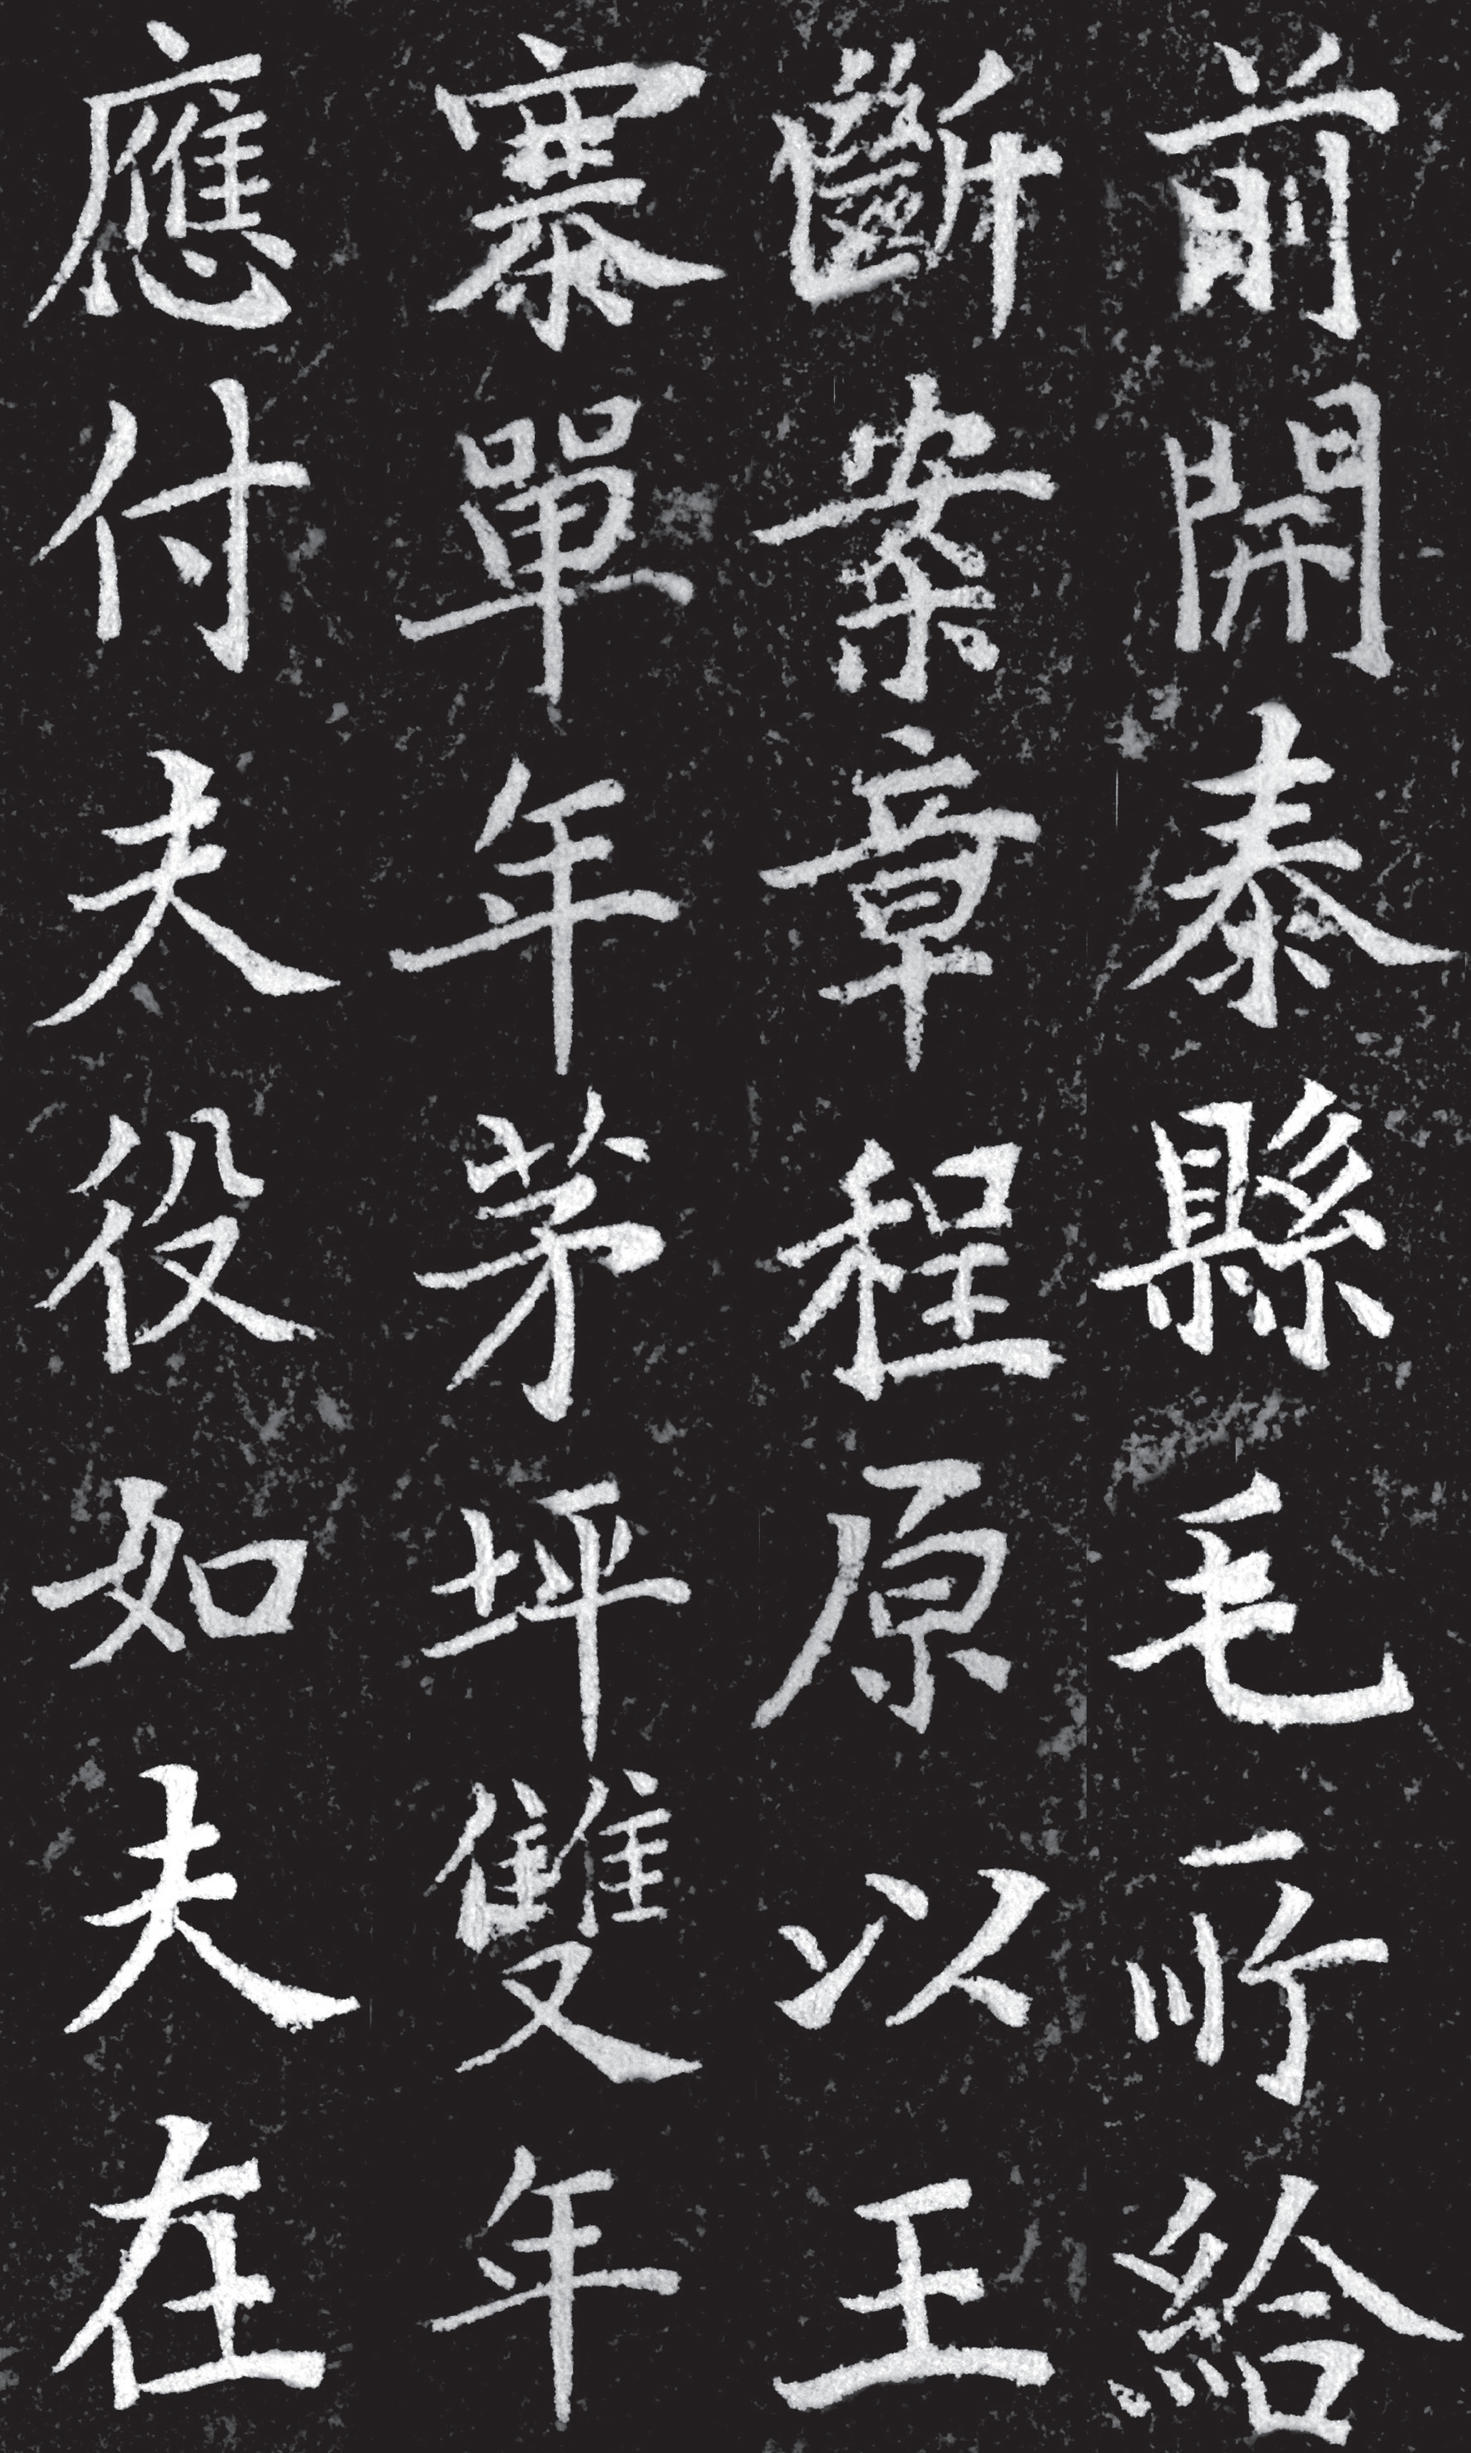 前開泰縣毛所給
斷案章程原以王
寨單年茅坪雙年
應付夫役如夫在